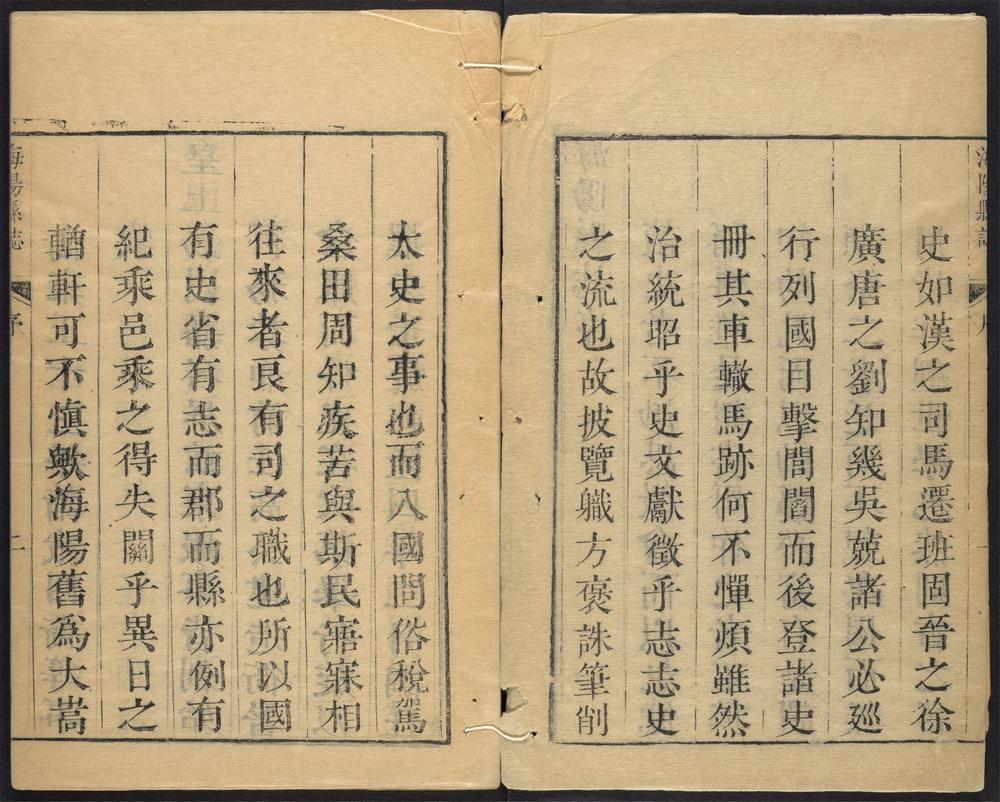 海陽縣誌
史如漢之司馬遷班固晉之徐
廣唐之劉知幾吳兢諸公必廵
行列國目擊閭閻而後登諸史
冊其車轍馬跡何不憚煩雖然
治統昭乎史文獻徵乎志志史
之流也故披覽職方褒誅筆削
太史之事也而入國問俗稅駕
桑田周知疾苦與斯民寤寐相
往來者良有司之職也所以國
有史省有志而郡而縣亦例有
紀乘邑乘之得失關乎異日之
輶軒可不慎歟海陽舊為大嵩
海陽縣誌
序
二